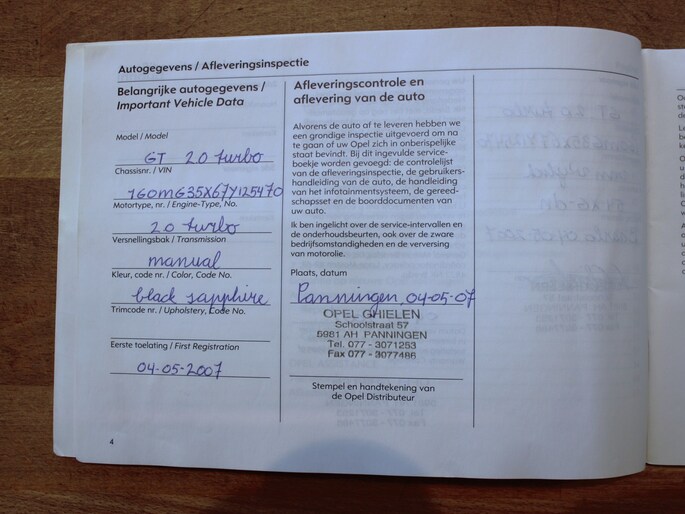 Autogegevens / Afleveringsinspectie
Belangrijke autogegevens /
Important Vehicle Data
Model / Model
GT 2.0 turbo
Chassisnr. / VIN
1G0MG35X67Y125470
Motortype, nr. / Engine-Type, No.
2.0 turbo
Versnellingsbak / Transmission
manual
Kleur, code nr. / Color, Code No.
black sapphire
Trimcode nr. / Upholstery, Code No.
Eerste toelating / First Registration
04-05-2007
4
Afleveringscontrole en
aflevering van de auto
Alvorens de auto af te leveren hebben we
een grondige inspectie uitgevoerd om na
te gaan of uw Opel zich in onberispelijke
staat bevindt. Bij dit ingevulde service-
boekje worden gevoegd: de controlelijst
van de afleveringsinspectie, de gebruikers-
handleiding van de auto, de handleiding
van het infotainmentsysteem, de gereed-
schapsset en de boorddocumenten van
uw auto.
Ik ben ingelicht over de service-intervallen en
de onderhoudsbeurten, ook over de zware
bedrijfsomstandigheden en de verversing
van motorolie.
Plaats, datum
Panningen, 04-05-07
OPEL GHIELEN
Schoolstraat 57
5981 AH PANNINGEN
Tel. 077 - 3071253
Fax 077 - 3077486
Stempel en handtekening van
de Opel Distributeur